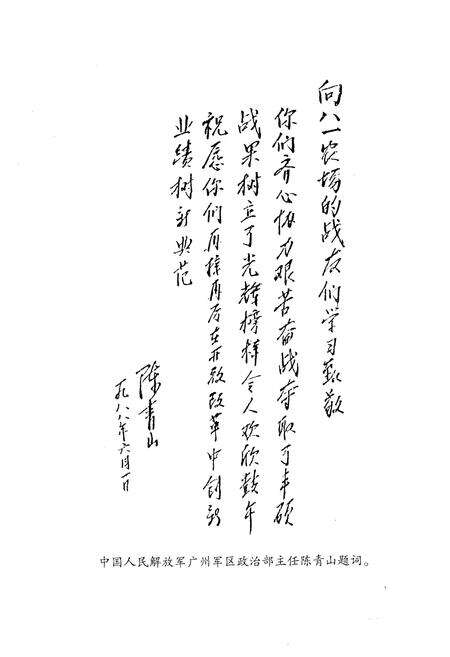 向八一农场的战友们学习致敬
你们齐心协力艰苦奋战夺取了丰硕
战果树立了光辉榜样令人欢欣鼓午
祝愿你们再接再厉在开放改革中创新
业绩树新典范
陈青山
一九八八年六月一日
中国人民解放军广州军区政治部主任陈青山题词。